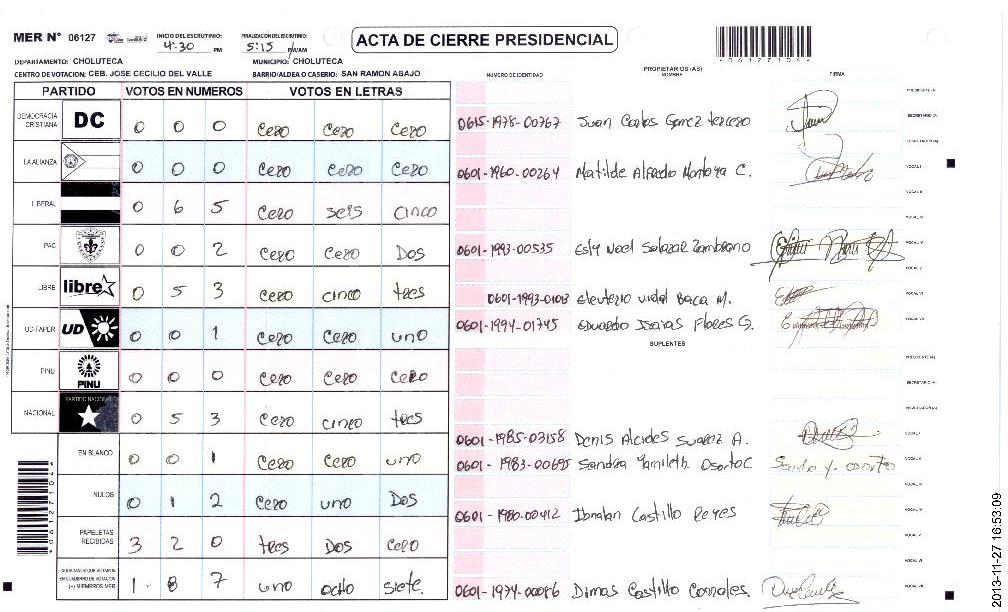 MER N° 06127
INICIO DEL ESCRUTINIO: 4:30 PM
FINALIZACION DEL ESCRUTINIO: 5:15 PM/AM
ACTA DE CIERRE PRESIDENCIAL
061271044
DEPARTAMENTO: CHOLUTECA MUNICIPIO: CHOLUTECA
CENTRO DE VOTACION: CEB. JOSE CECILIO DEL VALLE BARRIO/ALDEA O CASERIO: SAN RAMON ABAJO
NUMERO DE IDENTIDAD PROPIETARIOS (AS) NOMBRE FIRMA
PARTIDO VOTOS EN NUMEROS VOTOS EN LETRAS
DEMOCRACIA CRISTIANA DC 0 0 0 Cero Cero Cero
LA ALIANZA 0 0 0 Cero Cero Cero
LIBERAL 0 6 5 Cero seis cinco
PAC 0 0 2 Cero Cero Dos
LIBRE libre 0 5 3 Cero cinco tres
UD-FAPER UD 0 0 1 Cero Cero uno
PINU PINU 0 0 0 Cero Cero Cero
NACIONAL PARTIDO NACIONAL 0 5 3 Cero cinco tres
EN BLANCO 0 0 1 Cero Cero uno
NULOS 0 1 2 Cero uno Dos
PAPELETAS RECIBIDAS 3 2 0 tres Dos Cero
CIUDADANOS QUE VOTARON EN CUADERNO DE VOTACION (+) MIEMBROS MER 1 8 7 uno ocho siete
0615-1978-00767 Juan Carlos Gomez tercero
0601-1960-00264 Matilde Alfredo Montoya C.
0601-1993-00535 Esly Noel Salazar Zambrano
0601-1993-01013 Eleuterio Vidal Baca M.
0601-1994-01745 Eduardo Isaias Flores G.
SUPLENTES
0601-1985-03158 Denis Alcides Suarez A.
0601-1983-00695 Sandra Yamileth Osorto C.
0601-1980-00412 Castillo Reyes
0601-1974-00086 Dimas Castillo Corrales
PRESIDENTE (A)
SECRETARIO (A)
ESCRUTADOR (A)
VOCAL I
VOCAL II
VOCAL III
VOCAL IV
VOCAL V
VOCAL VI
VOCAL VII
PRESIDENTE (A)
SECRETARIO (A)
ESCRUTADOR (A)
VOCAL I
VOCAL II
VOCAL III
VOCAL IV
VOCAL V
VOCAL VI
VOCAL VII
061271044
2013-11-27 16:53:09